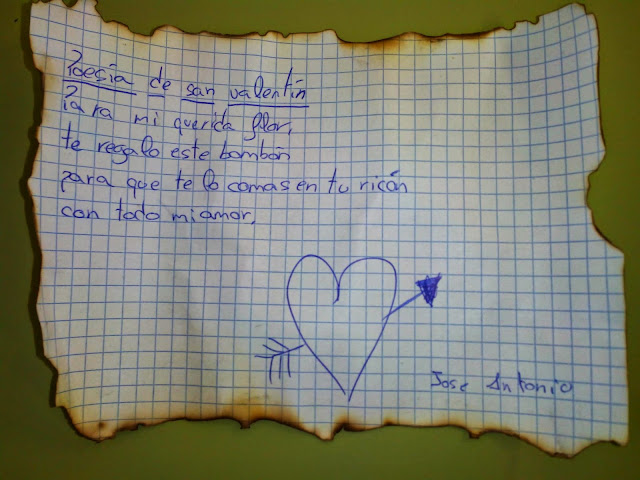 Poesia de san valentín
Para mi querida flor,
te regalo este bombón
para que te lo comas en tu ricón
con todo mi amor.
Jose Antonio